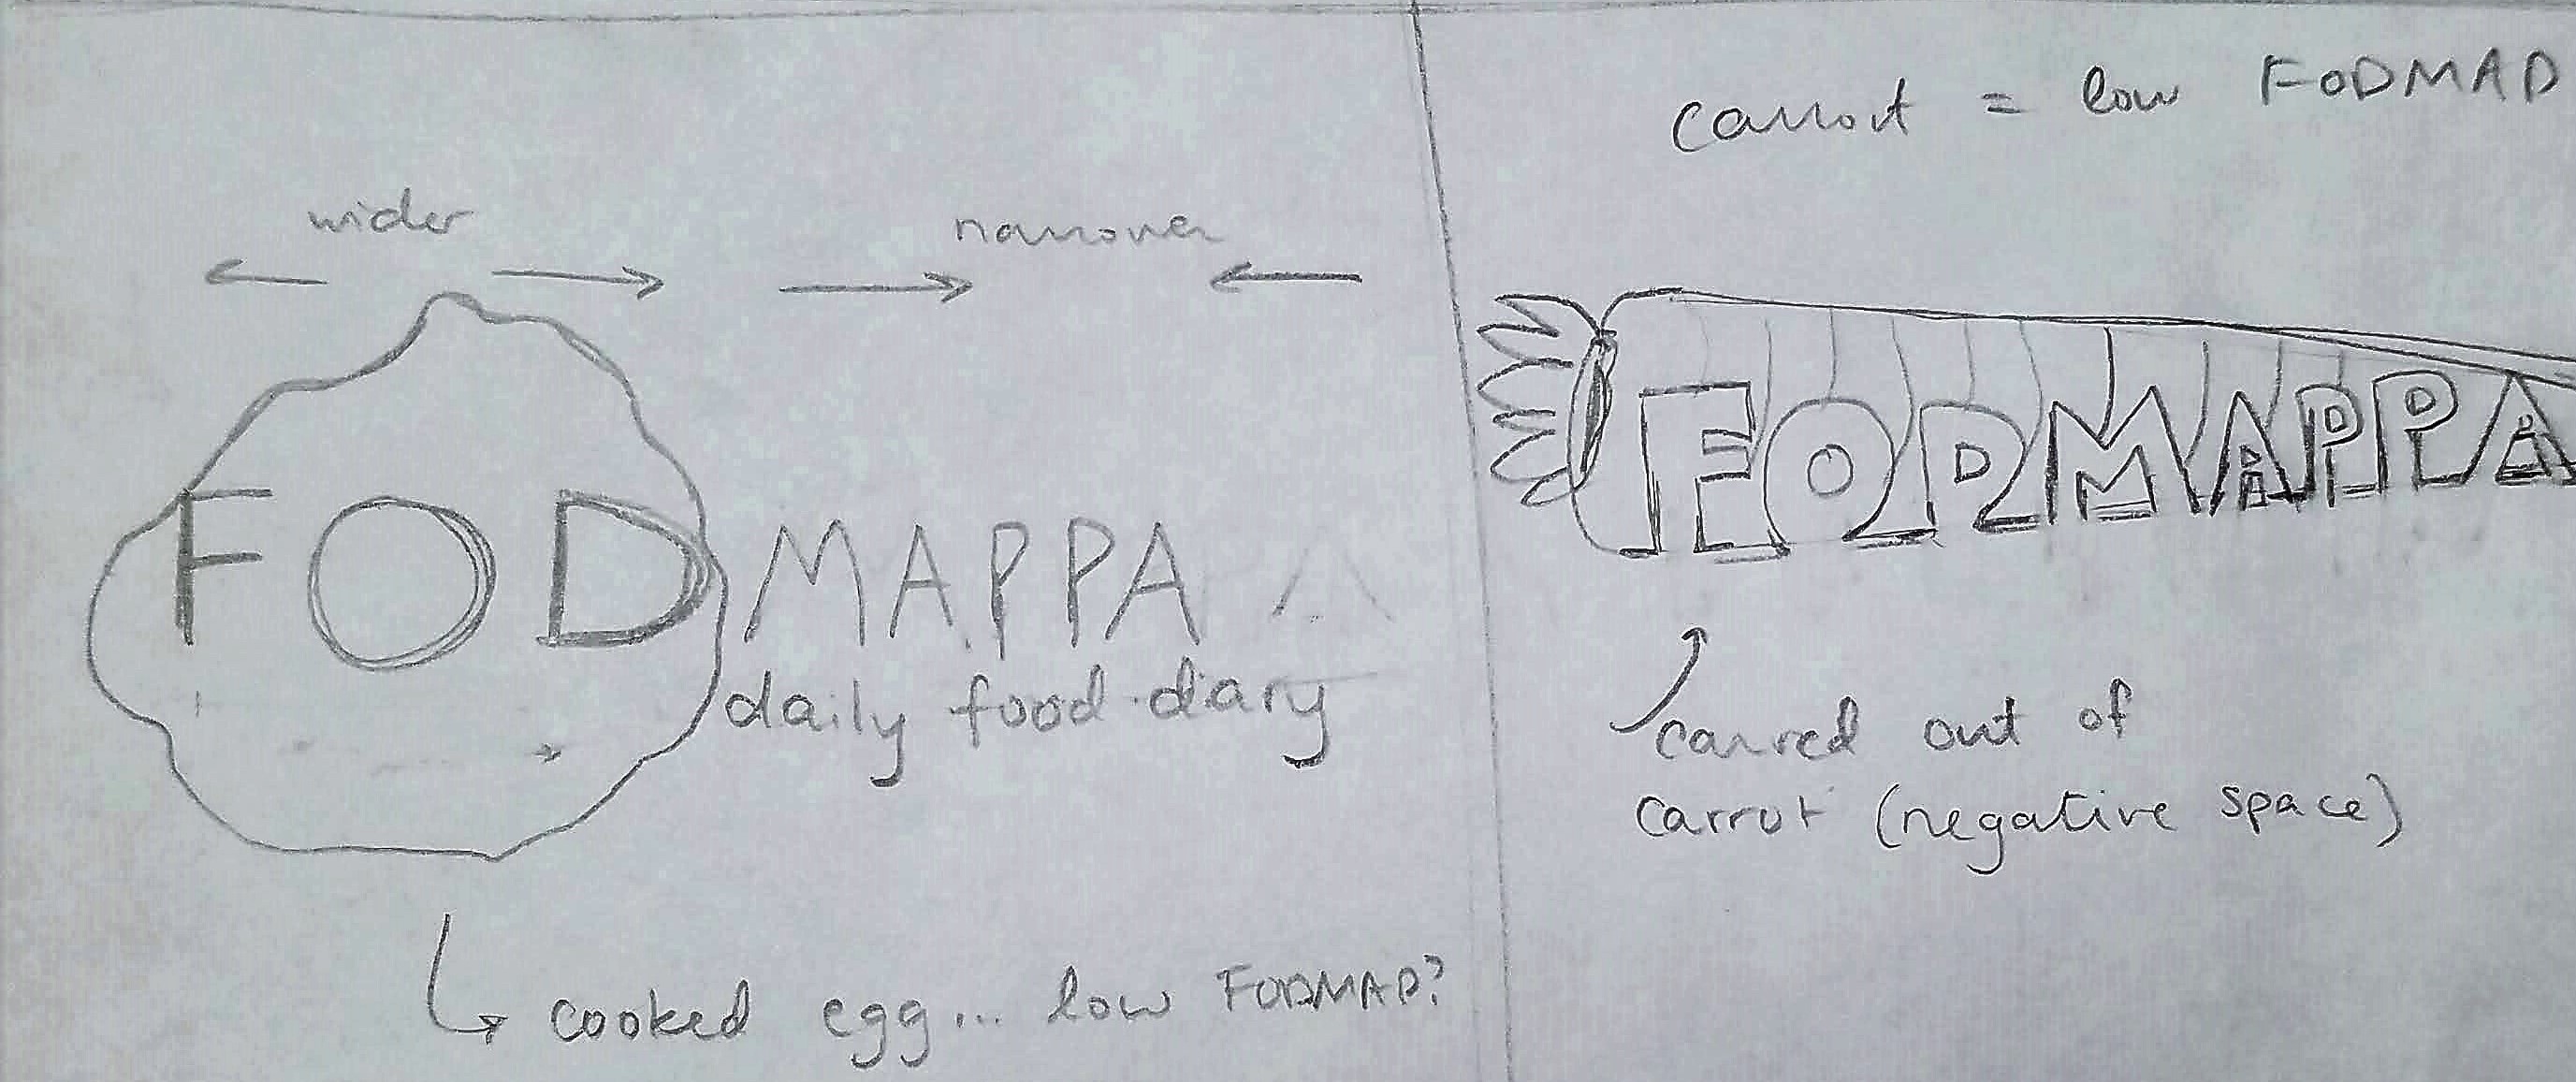 wider
narrower
FODMAPPA
daily food diary
cooked egg... low FODMAP?
carrot = low FODMAP
FODMAPPA
carved out of
carrot (negative space)